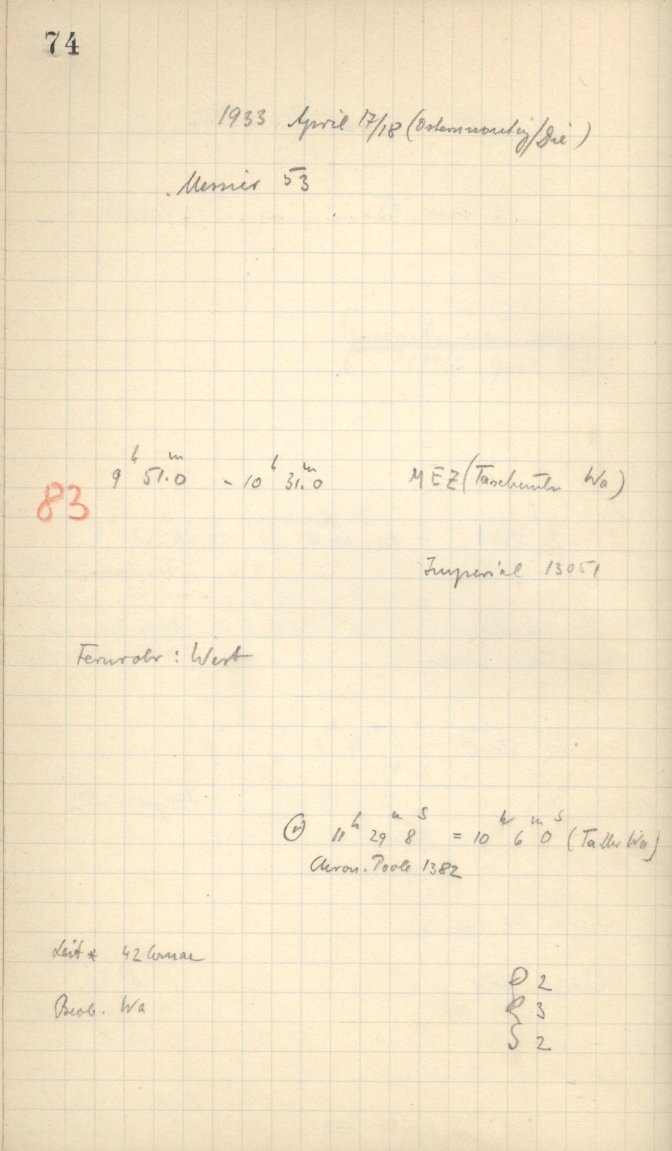 74
1933 April 17/18 (Ostermontag/Die)
Messier 53
9h 51m.0 - 10h 31m.0 MEZ (Taschenuhr Wa)
83
Imperial 13051
Fernrohr: West
11h 29m 8s = 10h 6m 0s (Ta Uhr Wa)
Chron. Poole 1382
Leit* 42 Comae
Beob. Wa
2
3
S 2